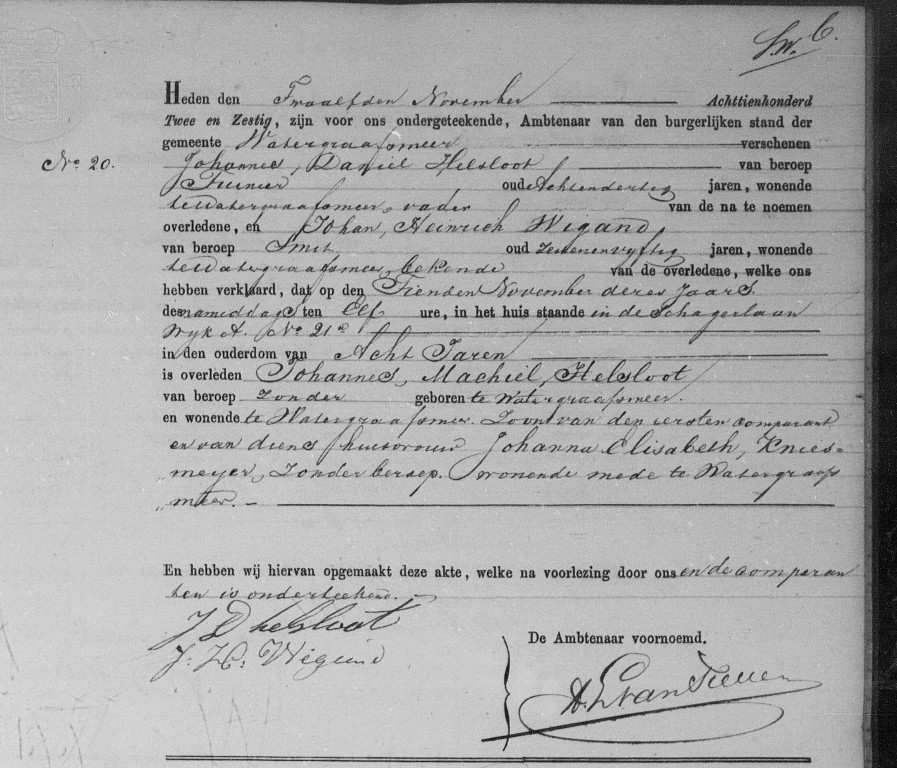 Heden den Twaalfden November Achttienhonderd
Twee en Zestig, zijn voor ons ondergeteekende, Ambtenaar van den burgerlijken stand der
gemeente Watergraafsmeer verschenen
No 20. Johannes, Daniel Helsloot van beroep
Tuinier oud Achtendertig jaren, wonende
te Watergraafsmeer, vader van de na te noemen
overledene, en Johan, Heinrich Wigand
van beroep Smit oud Zevenenvyftig jaren, wonende
te Watergraafsmeer, bekende van de overledene, welke ons
hebben verklaard, dat op den Tienden November dezes Jaars.
des namiddags ten Elf ure, in het huis staande in de Schagerlaan
Wyk A. No 21
in den ouderdom van Acht Jaren
is overleden Johannes, Machiel, Helsloot
van beroep Zonder geboren te Watergraafsmeer.
en wonende te Watergraafsmeer. Zoon van den eersten comparant
en van diens huisvrouw Johanna Elisabeth, Knies=
„meyer, Zonder beroep. wonende mede te Watergraafs
„meer. –
En hebben wij hiervan opgemaakt deze akte, welke na voorlezing door ons en de comparan
ten is onderteekend.
J D Helsloot
J. H. Wigand
De Ambtenaar voornoemd.